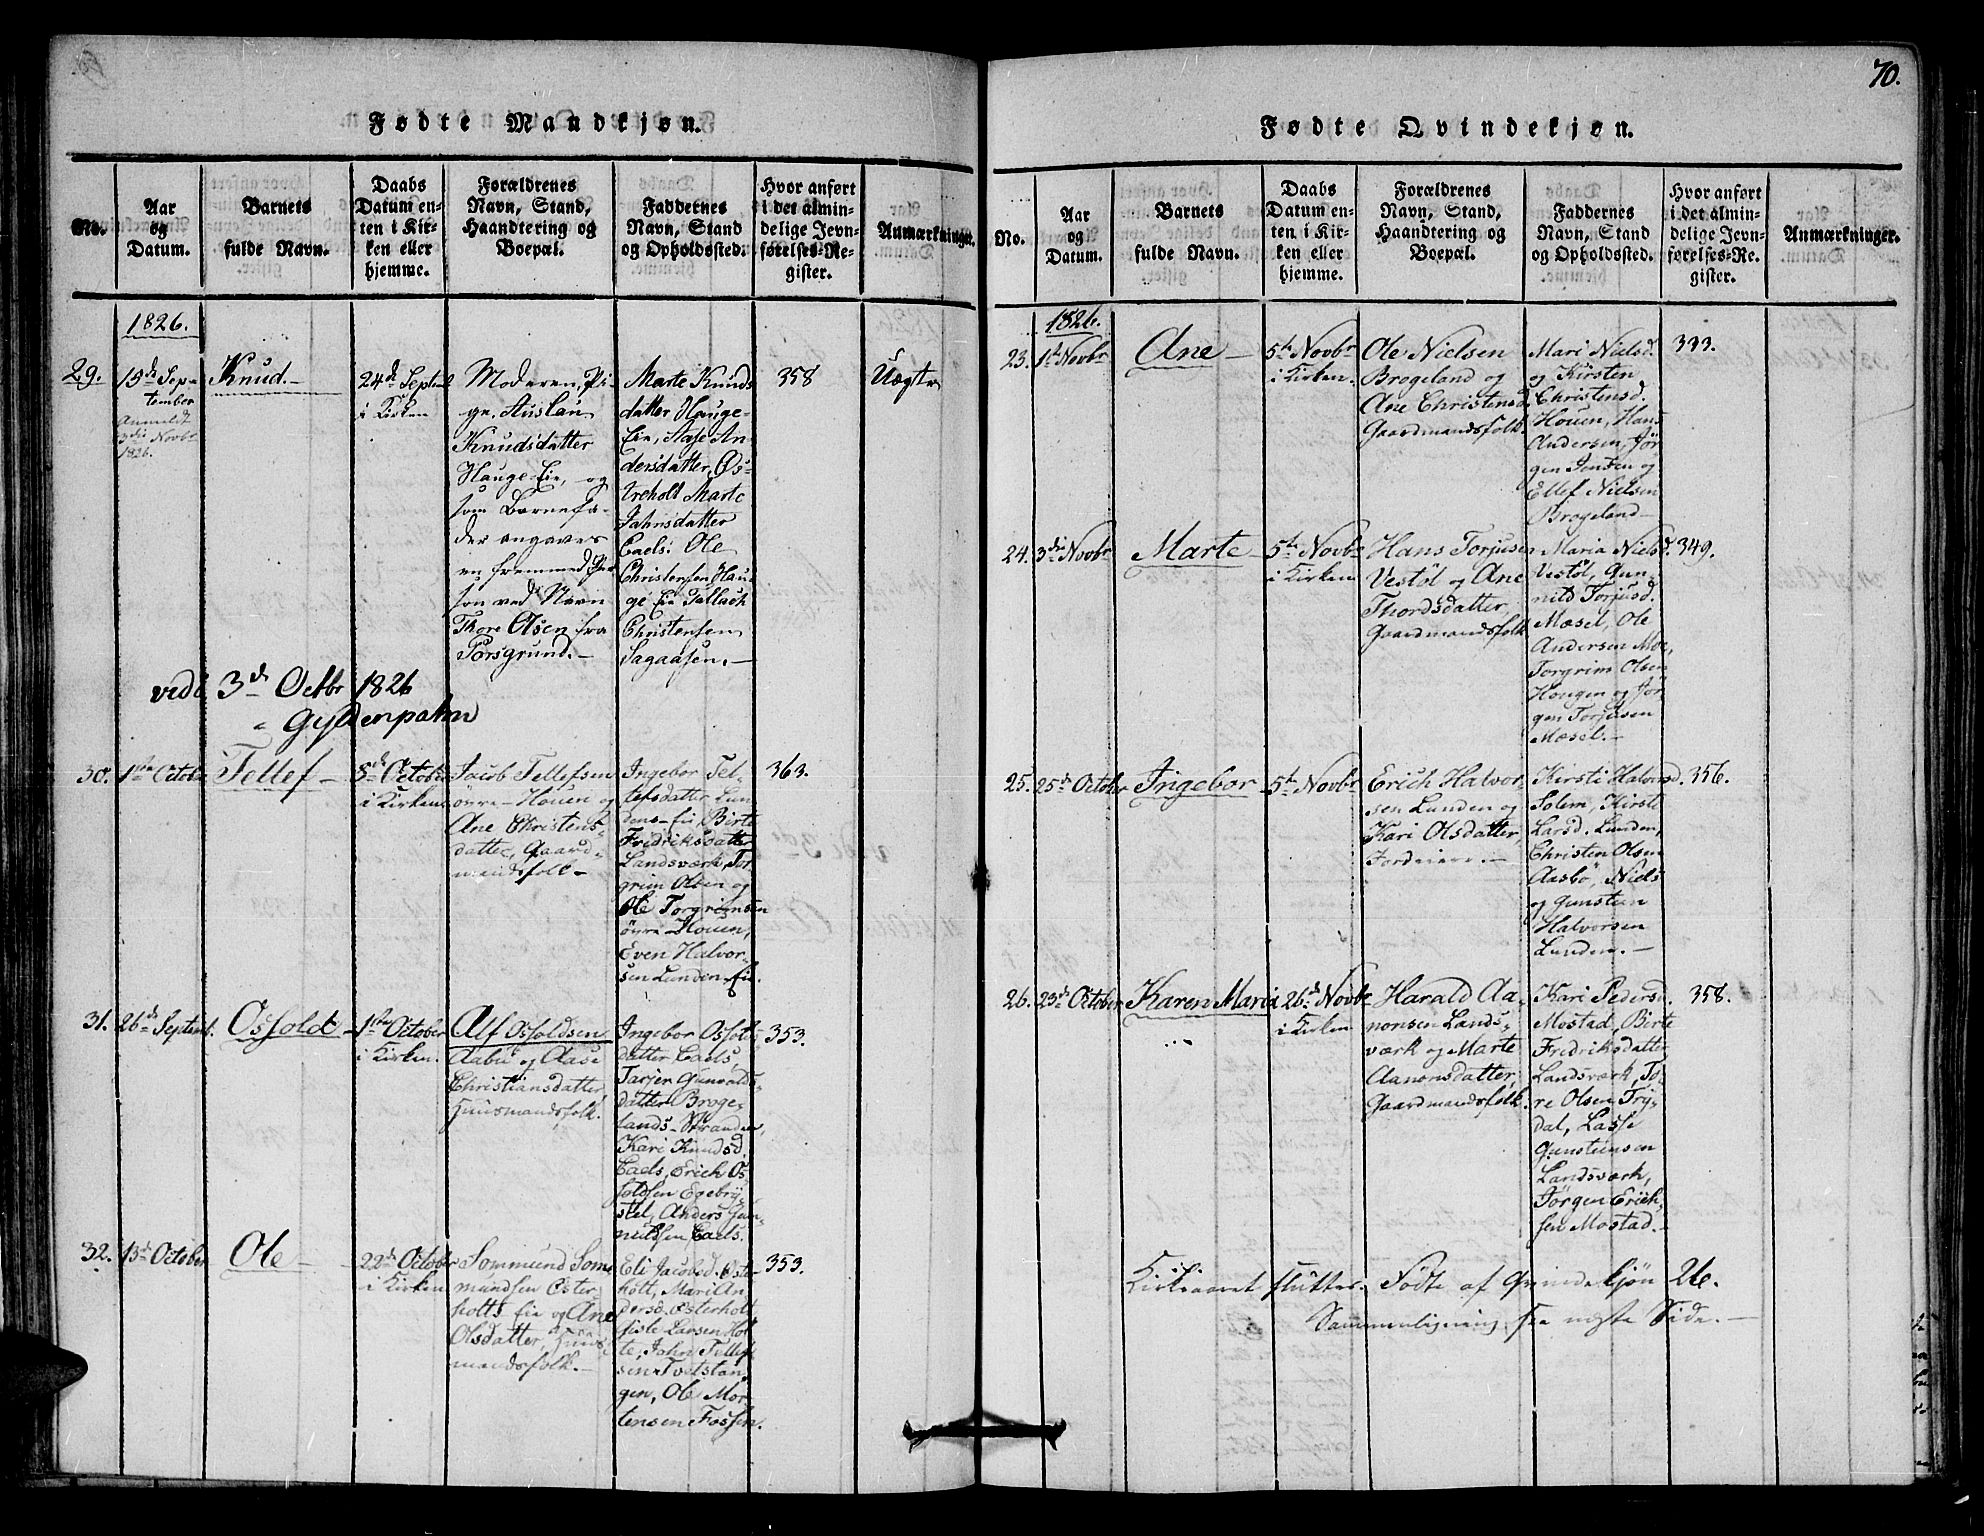 70.
Fødte Mandkjøn.
No.
Aar
og
Datum.
Barnets
fulde Navn.
Daabs
Datum en-
ten i Kir-
ken eller
hjemme.
Forældrenes
Navn, Stand,
Haandtering og
Boepæl.
Faddernes
Navn, Stand
og Opholdssted.
Hvor anført
i det almin-
delige Jevn-
førelses-Re-
gister.
Anmærkninger.
1826.
29.
15de Sep-
tember
Anmeldt
3die Novbr
1826.
Knud.
24de Septbr
i Kirken
Moderen, Pi-
ge, Auslau
Knudsdatter
Hauge-Eie, og
som Barnefa-
der angaves
en fremmed Per
son ved Navn
Thore Olsen fra
Porsgrund.
Marte Knuds
datter Hauge-
Eie, Aase An-
dersdatter, Øs-
treholt Marte
Jahnsdatter
Eaels: Ole
Christensen Hau-
ge Eie Tallach
Christensen
Sagaasen.
358
Uægte
vidi 3de Octbr 1826
Gyldenpalm
30.
1ste October
Tellef
8de October
i Kirken
Jacob Tellefsen
öyre-Houen og
Ane Christens-
datter, Gaard-
mandsfolk
Ingebor Tel-
lefsdatter Lun
dens-eie, Birte
Fredriksdatter
Landsværk, Tor
grim Olsen og
Ole Torgrimsen
öyre-Houen,
Even Halvor-
sen Lunden Eie.
363.
31.
26de Septemb.
Osfold
1ste October
i Kirken.
Alf Osfoldsen
Aabu og Aase
Christiansdatter
Huusmandsfolk.
Ingebor Osfol-
datter Eaels,
Tarjer Gunvalds-
datter Broge-
lands-Stranden,
Kari Knudsd.
Eaels, Erich Os-
foldsen Egebry-
stel, Anders Gun-
nulfsen Eaels.
353.
32.
13de October
Ole
22de October
i Kirken
Sommund Som-
mundsen Oster-
holts Eie og Ane
Olsdatter, Huus-
mandsfolk.
Eli Jacobsd. Oster
holt, Mari An-
dersd. Osterholt
Gisle Larsen Hol-
te, John Tellef
sen Tvetstan-
gen, Ole Mor-
tensen Fossen.
353.
Fødte Qvindekjøn.
No.
Aar
og
Datum.
Barnets
fulde Navn.
Daabs
Datum en-
ten i Kir-
ken eller
hjemme.
Forældrenes
Navn, Stand,
Haandtering og
Boepæl.
Faddernes
Navn, Stand
og Opholdssted.
Hvor anført
i det almin-
delige Jevn-
førelses-Re-
gister.
Anmærkninger.
1826.
23.
1st Novbr
Ane
5te Novbr
i Kirken.
Ole Nielsen
Brogeland og
Ane Christensd.
Gaardmandsfolk.
Mari Nielsd.
og Kirsten
Christensd.
Houen, Hans
Andersen, Jör-
gen Jensen og
Ellef Nielsen
Brogeland
333.
24.
3die Novbr
Marte
5te Novbr
i Kirken
Hans Torjusen
Vestöl og Ane
Thordsdatter,
Gaardmandsfolk
Maria Nielsd.
Vestöl, Gun-
nild Torjusd.
Mæsel, Ole
Andersen Moe,
Torgrim Olsen
Hougen og Jör
gen Torjusen
Mæsel.
349.
25.
25de October
Ingebor
5te Novbr
Erich Halvor-
sen Lunden og
Kari Olsdatter,
Jordeiere.
Kirsti Halvorsd.
Solem, Kirste
Larsd. Lunden,
Christen Olsen
Aasbö, Niels
og Gunsteen
Halvorsen
Lunden.
356.
26.
23de October
Karen Maria
26de Novbr
i Kirken
Harald Aa-
nonsen Lands-
værk og Marte
Aanonsdatter,
Gaardmandsfolk.
Kari Pedersd.
Mostad, Birte
Fredriksdatter
Landsværk, To-
re Olsen Try-
dal, Lasse
Gunsteinsen
Landsværk,
Jörgen Erich
sen Mostad.
358.
Kirkeaaret sluttes. Födte af Qvindekjön 26.
Sammenligning see næste Side.